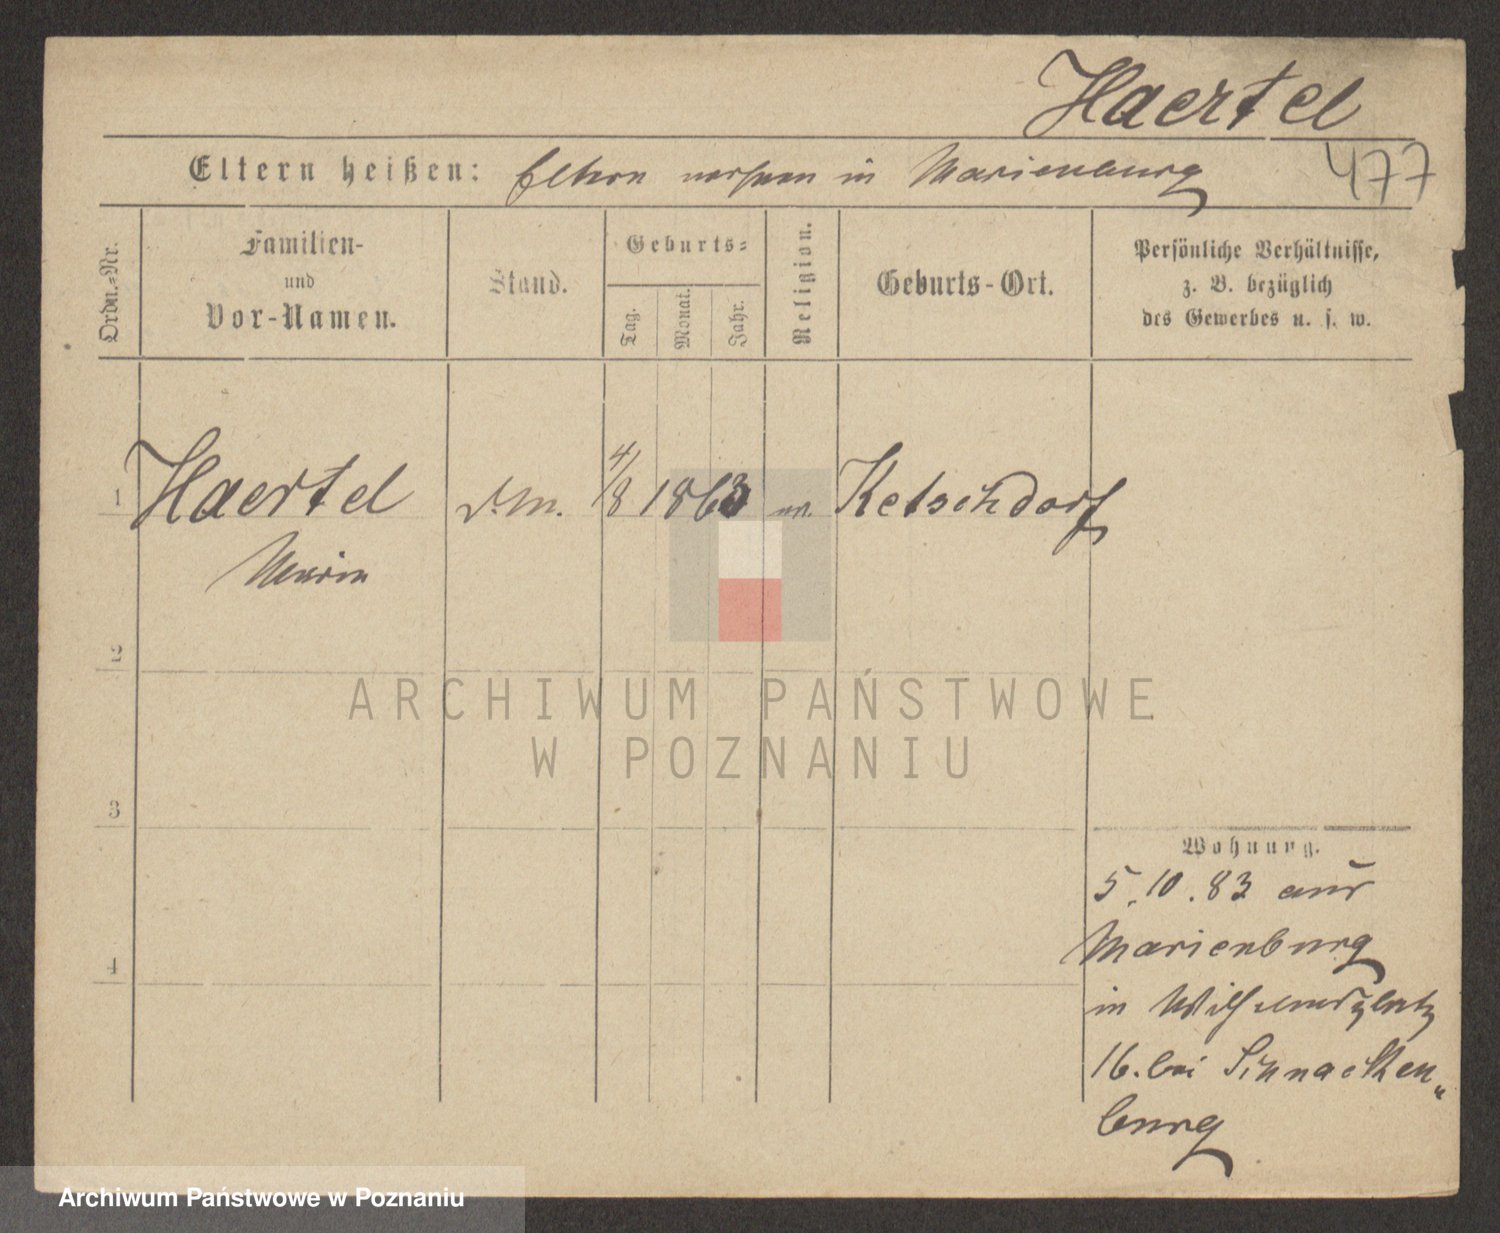 Haertel
477
Eltern heißen: Eltern wohnen in Marienburg
Ordn.=Nr.
Familien-
und
Vor-Namen.
Stand.
Geburts=
Tag.
Monat.
Jahr.
Religion.
Geburts-Ort.
Persönliche Verhältnisse,
z. B. bezüglich
des Gewerbes u. s. w.
1 Haertel d.M. 4/8 1863 ev. Ketschdorf
Maria
2
3
4
Wohnung.
5.10.83 aus
Marienburg
in Wilhelmsplatz
16. bei Schnacken„
burg
ARCHIWUM PAŃSTWOWE
W POZNANIU
Archiwum Państwowe w Poznaniu